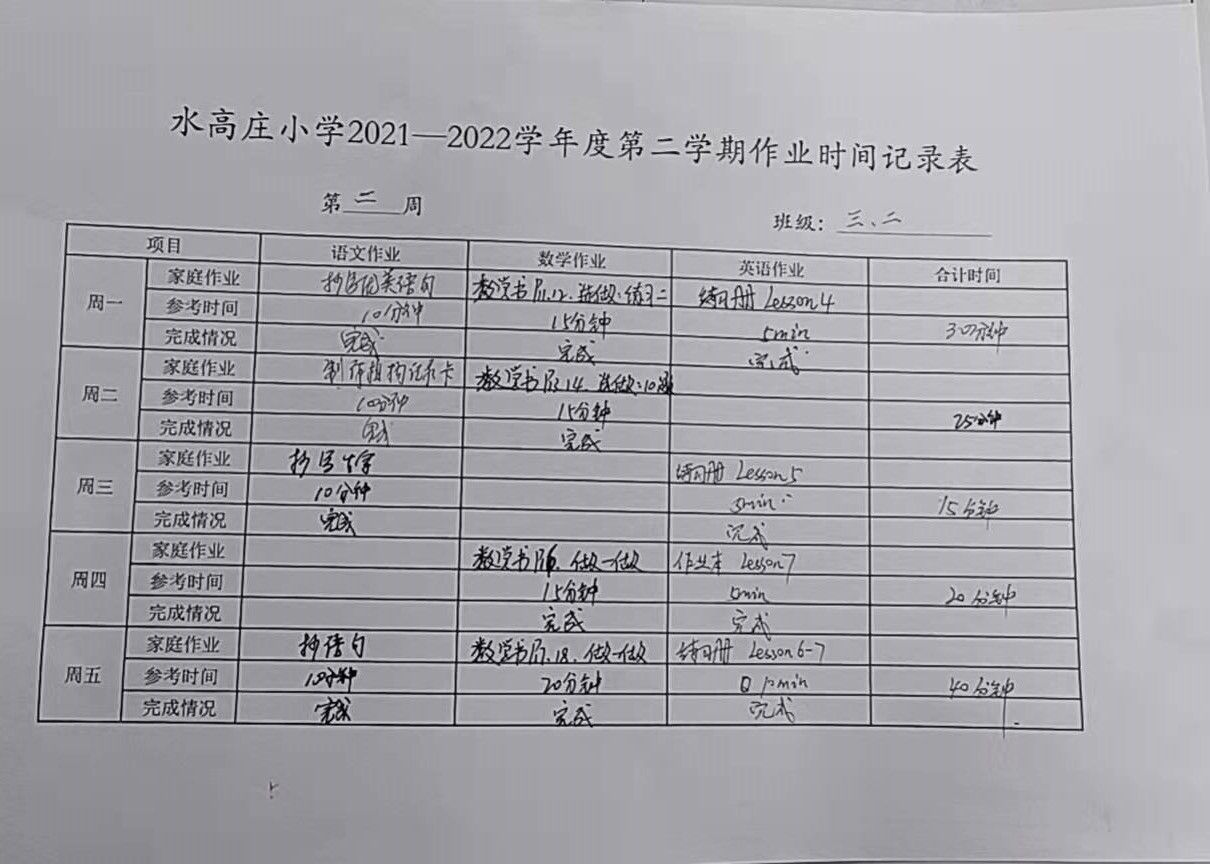 水高庄小学2021—2022学年度第二学期作业时间记录表
第二周 班级：三、二
项目 语文作业 数学作业 英语作业 合计时间
周一 家庭作业 抄写优美语句 数学书P.12. 选做:练习二 练习册 Lesson 4
参考时间 10分钟 15分钟 5min 30分钟
完成情况 完成 完成 完成
周二 家庭作业 制作植物记录卡 数学书P.14. 选做:10题
参考时间 10分钟 15分钟 25分钟
完成情况 完成 完成
周三 家庭作业 抄写生字 练习册 Lesson 5
参考时间 10分钟 5min 15分钟
完成情况 完成 完成
周四 家庭作业 数学书P16. 做一做 作业本 Lesson 7
参考时间 15分钟 5min 20分钟
完成情况 完成 完成
周五 家庭作业 抄语句 数学书P.18. 做一做 练习册 Lesson 6-7
参考时间 10分钟 20分钟 min 40分钟
完成情况 完成 完成 完成